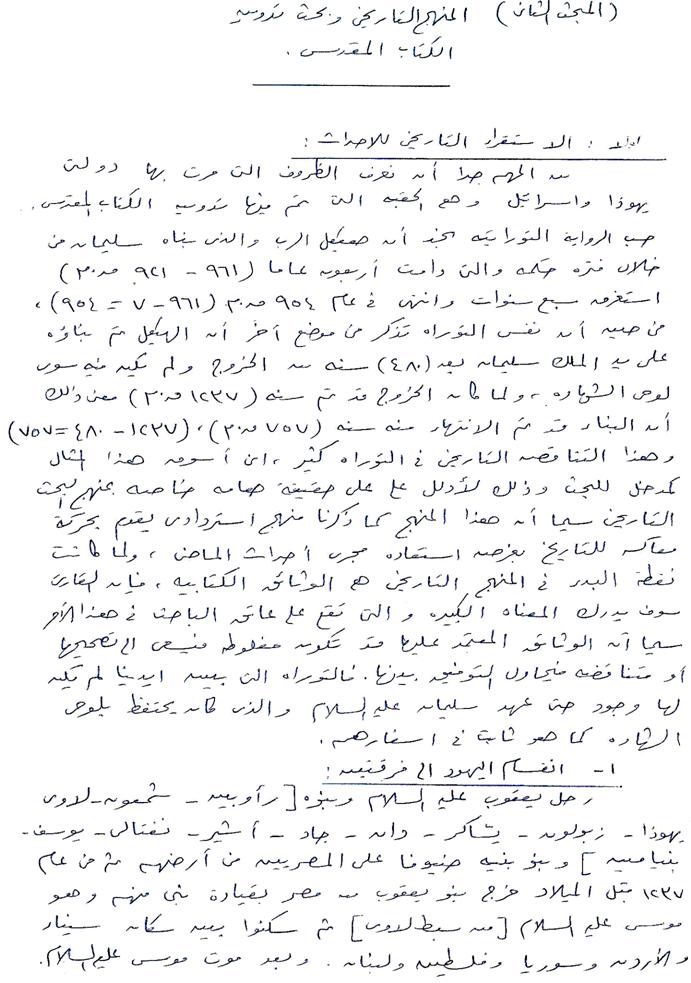 (المبحث الثانى) المنهج التاريخى وبحث تدوين
الكتاب المقدس .
اولا : الاستقراء التاريخى للاحداث :
من المهم جدا أن نعرف الظروف التى مرت بها دولتى
يهوذا واسرائيل وهى الحقبه التى تم فيها تدوين الكتاب المقدس .
حسب الرواية التوراتيه نجد أن هيكل الرب والذى بناه سليمان من
خلال فتره حكمه والتى دامت أربعون عاما (٩٦١ – ٩٢١ ق.م)
استغرق سبع سنوات وانتهى فى عام ٩٥٤ ق.م (٩٦١ – ٧ = ٩٥٤) ،
من حين أن نفس التوراه تذكر من موضع آخر أن الهيكل تم بناؤه
على يد الملك سليمان بعد (٤٨٠) سنه من الخروج ولم يكن فيه سوى
لوحى الشهاده ، ولما كان الخروج قد تم سنه (١٢٣٧ ق.م) معنى ذلك
أن البناء قد تم الانتهاء منه سنه (٧٥٧ ق.م) ، (١٢٣٧ – ٤٨٠ = ٧٥٧)
وهذا التناقض التاريخى فى التوراه كثير ، انى أسوق هذا المثال
كمدخل للبحث وذلك لأدلل على حقيقة هامه خاصه بمنهج البحث
التاريخى سيما أن هذا المنهج كما ذكرنا منهج استردادى يقوم بحركة
معاكسه للتاريخ بغرض استعاده مجرى أحداث الماضى ، ولما كانت
نقطة البدء فى المنهج التاريخى هى الوثائق الكتابيه ، فإن القارئ
سوف يدرك المعناه الكبيره والتى تقع على عاتق الباحث فى هذا الأمر
سيما أن الوثائق المعتمد عليها قد تكون مغلوطه فيسعى الى تصحيحها
أو متناقضه فيحاول التوفيق بينها . فالتوراه التى بين ايدينا لم تكن
لها وجود حتى عهد سليمان عليه السلام والذى كان يحتفظ بلوحى
الشهاده كما هو ثابت فى اسفارهم .
١- انقسام اليهود الى فرقتين :
رحل يعقوب عليه السلام وبنوه [رأوبين – شمعون – لاوى
يهوذا – زبولون – يشاكر – دان – جاد – أشير – نفتالى – يوسف –
بنيامين] وبنو بنيه ضيوفا على المصريين من أرضهم ثم من عام
١٢٣٧ قبل الميلاد خرج بنو يعقوب من مصر بقيادة نبى منهم وهو
موسى عليه السلام [من سبط لاوى] ثم سكنوا بين سكان سيناء
والأردن وسوريا وفلسطين ولبنان . وبعد موت موسى عليه السلام .